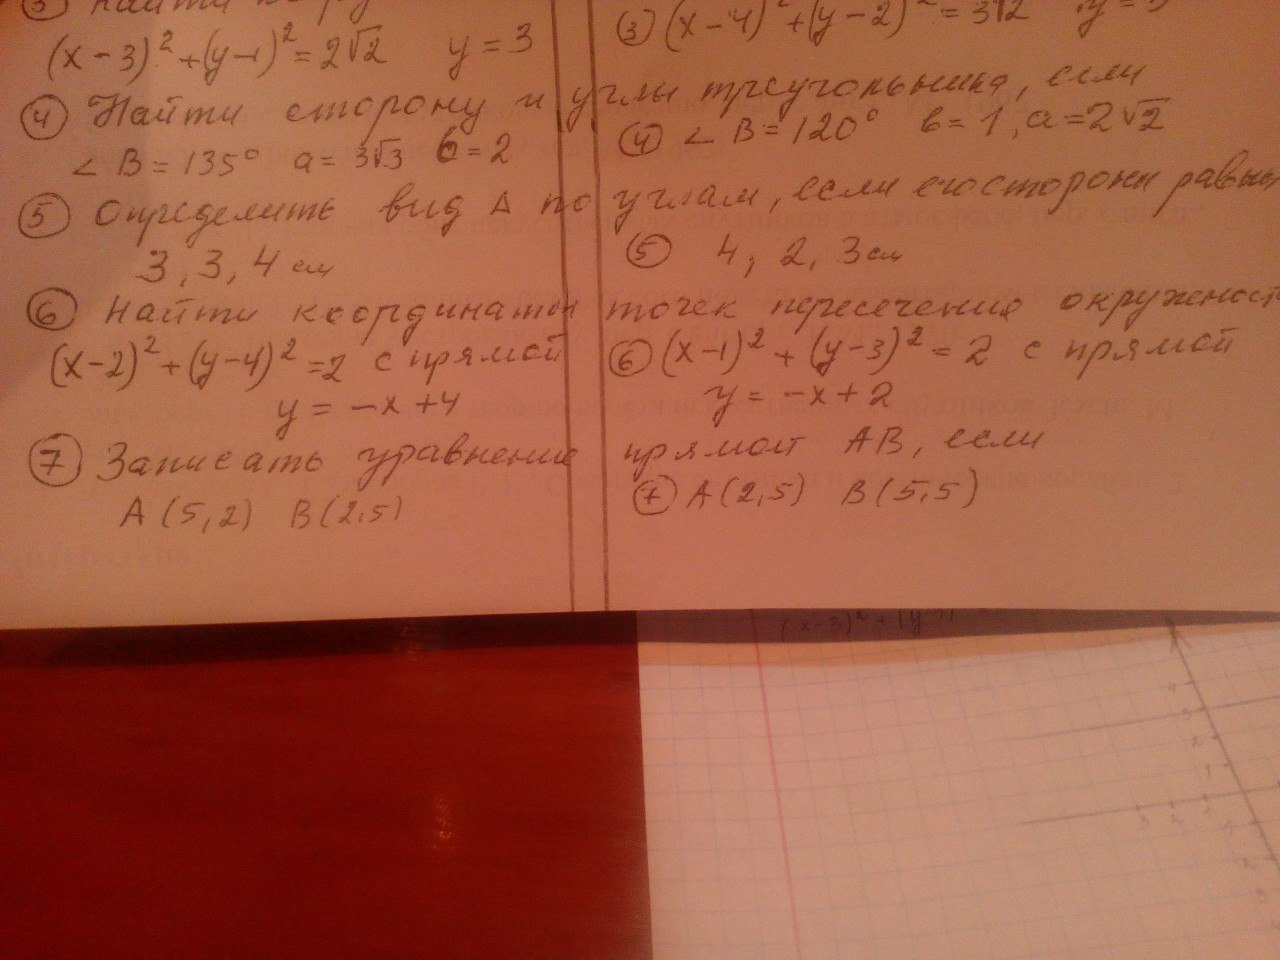 ③ Найти
(x-3)² + (y-1)² = 2√2 y = 3
③ (x-4)² + (y-2)² = 3√2
④ Найти сторону и углы треугольника, если
∠B = 135° a = 3√3 b = 2
④ ∠B = 120° b = 1, a = 2√2
⑤ Определить вид Δ по углам, если его стороны равны
3, 3, 4 см
⑤ 4, 2, 3 см
⑥ Найти координаты точек пересечения окружност
(x-2)² + (y-4)² = 2 с прямой
y = -x + 4
⑥ (x-1)² + (y-3)² = 2 с прямой
y = -x + 2
⑦ Записать уравнение прямой AB, если
A (5,2) B (2,5)
⑦ A (2,5) B (5,5)